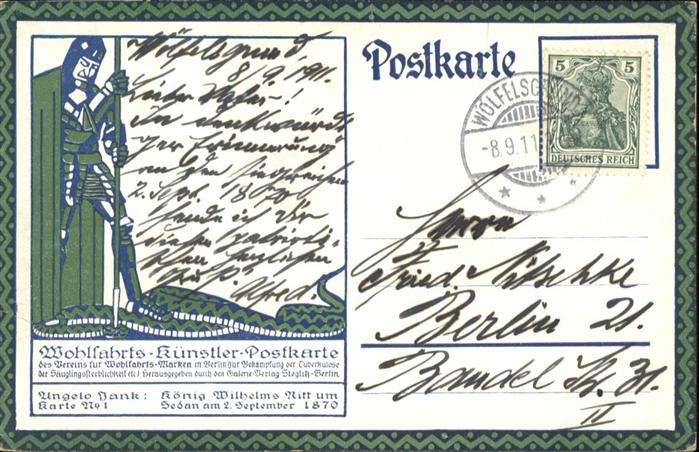 Postkarte
5 5
DEUTSCHES REICH
WÖLFELSGRUND
-8.9.11
Wölfelsgrund,
8/9. 1911.
Lieber Vater!
In denkwürdi-
ger Erinnerung
an den siegreichen
2. Sept. 1870
sende ich Dir
diesen patrioti-
schen herzlichen
Gruß.
Alfred.
Herrn
Fried. Nitschke
Berlin 21.
Bandel Str. 31.
II
Wohlfahrts-Künstler-Postkarte
des Vereins für Wohlfahrts-Marken in Berlin (zur Bekämpfung der Tuberkulose
der Säuglingssterblichkeit etc.) Herausgegeben durch den Galerie-Verlag Steglitz-Berlin.
Angelo Jank: König Wilhelms Ritt um
Karte No 1 Sedan am 2. September 1870